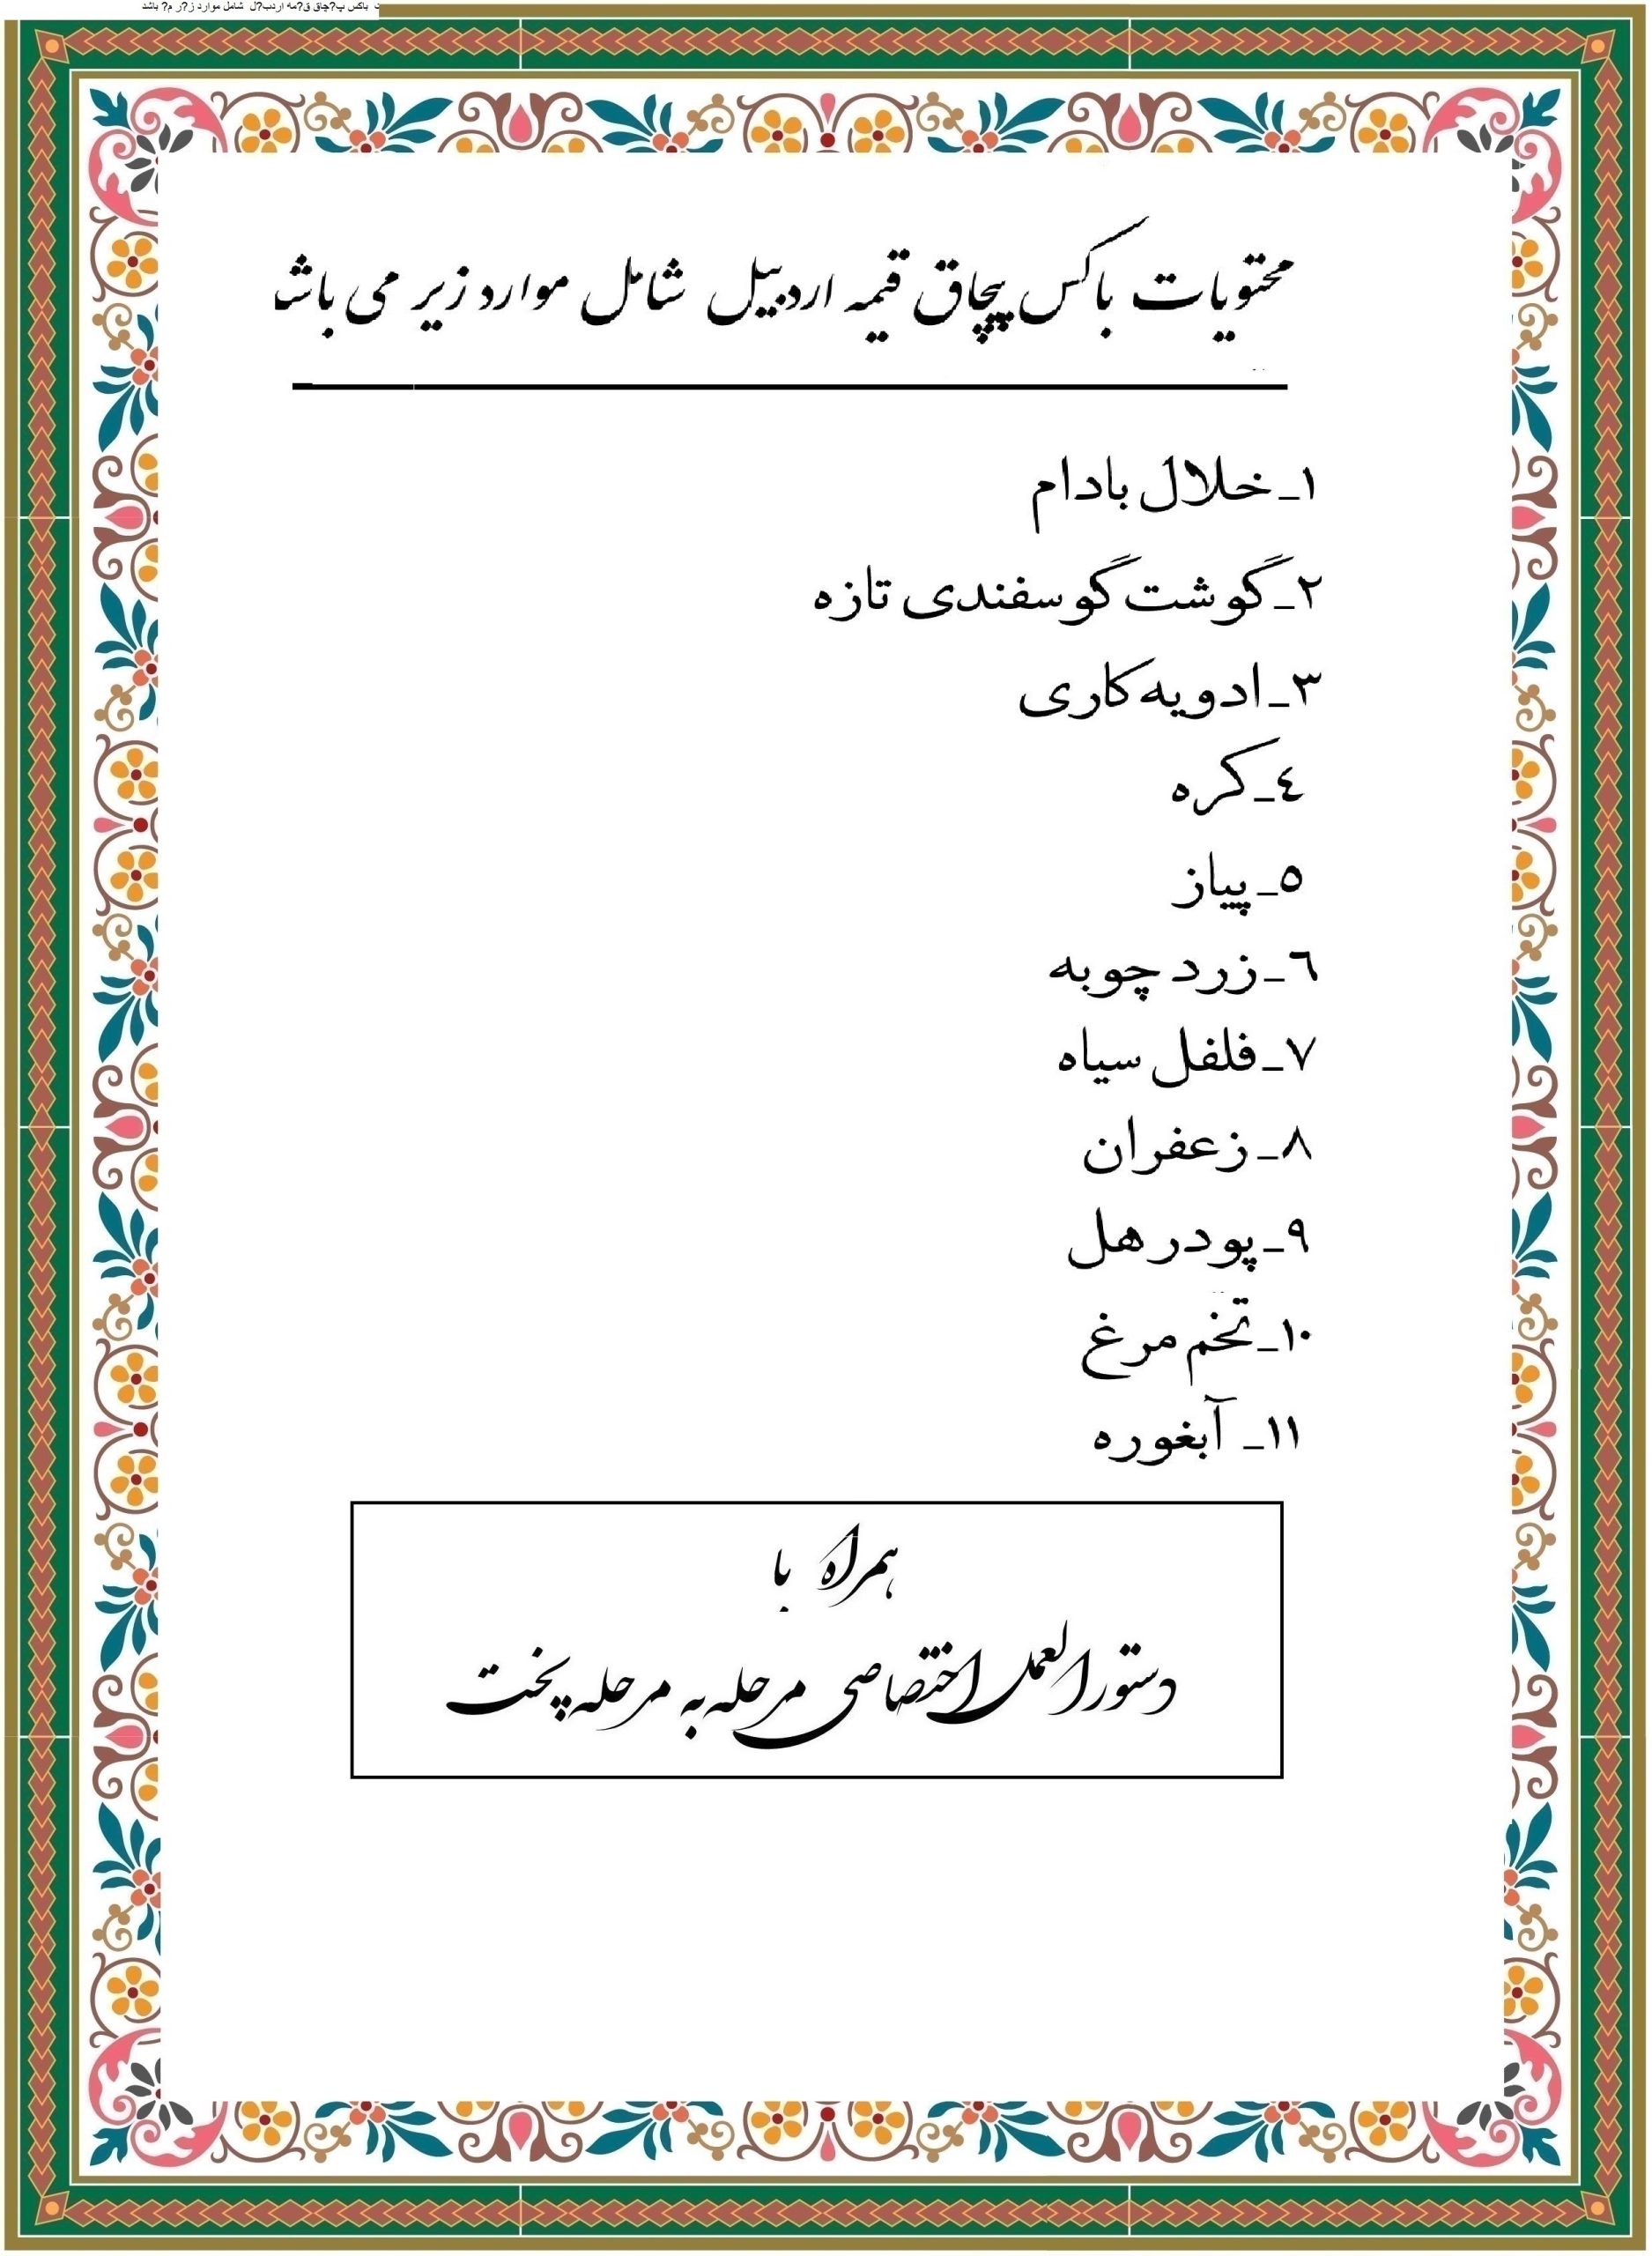 باکس پ?چاق ق?مه اردب?ل شامل موارد ز?ر م? باشد
محتویات باکس پیچاق قیمه اردبیل شامل موارد زیر می باشد
١_خلال بادام
٢_گوشت گوسفندی تازه
٣_ادویه کاری
٤_کره
٥_پیاز
٦_زرد چوبه
٧_فلفل سیاه
٨_زعفران
٩_پودر هل
١٠_تخم مرغ
١١_ آبغوره
همراه با
دستورالعمل اختصاصی مرحله به مرحله پخت